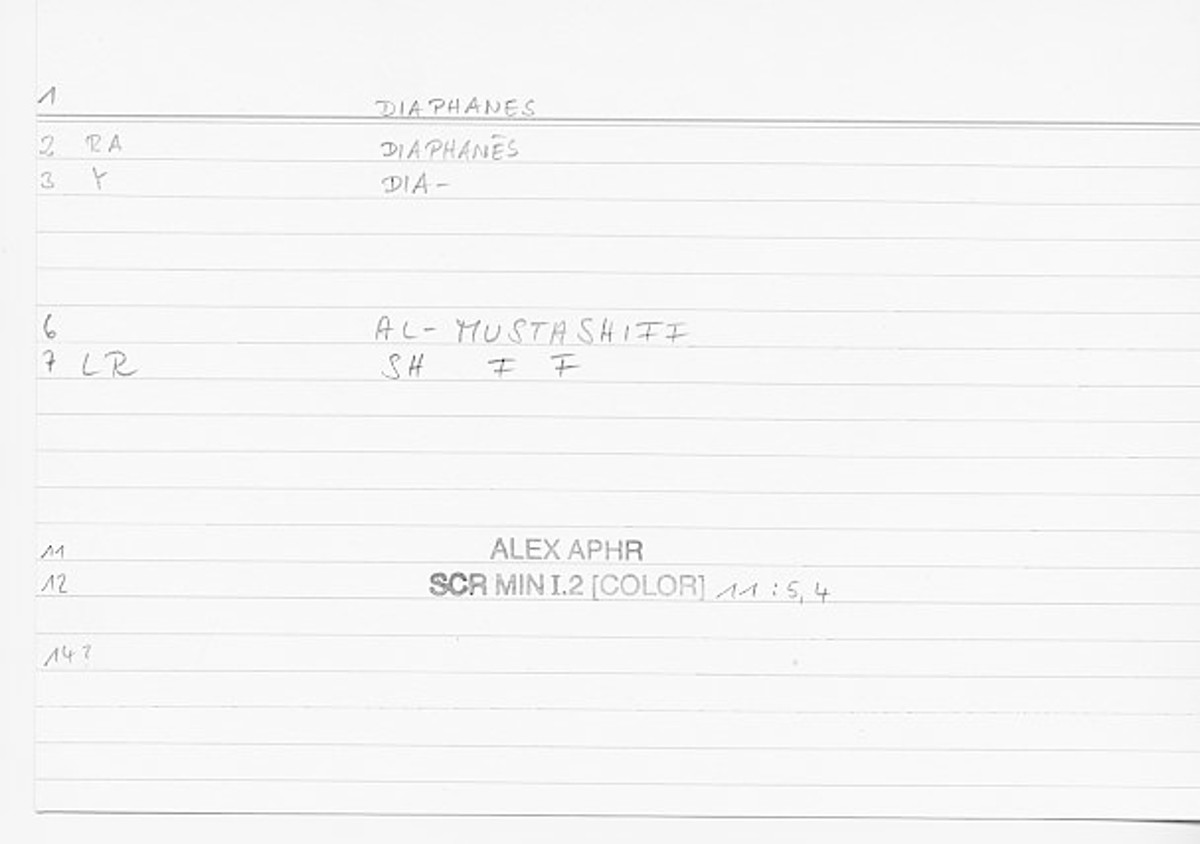 1 DIAPHANES
2 RA DIAPHANĒS
3 Y DIA-
6 AL-MUSTASHIFF
7 LR SH F F
11 ALEX APHR
12 SCR MIN I.2 [COLOR] 11:5,4
14?